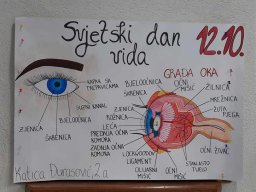 Svjetski dan
vida
12.10.
GRAĐA OKA
KAPKA SA
TREPAVICAMA
BJELOOČNICA
SUZNI KANAL
ZJENICA
ŠARENICA
BJELOOČNICA
ROŽNICA
LEĆA
PREDNJA OČNA
KOMORA
ZADNJA OČNA
KOMORA
ZJENICA
ŠARENICA
LIGAMENT
CILIJARNI
MIŠIĆ
OČNI
MIŠIĆ
OČNI
MIŠIĆ
ŽILNICA
MREŽNICA
ŽUTA
PJEGA
OČNI ŽIVAC
STAKLASTO
TIJELO
OČNI
MIŠIĆ
Katica Đurasović, 2.a